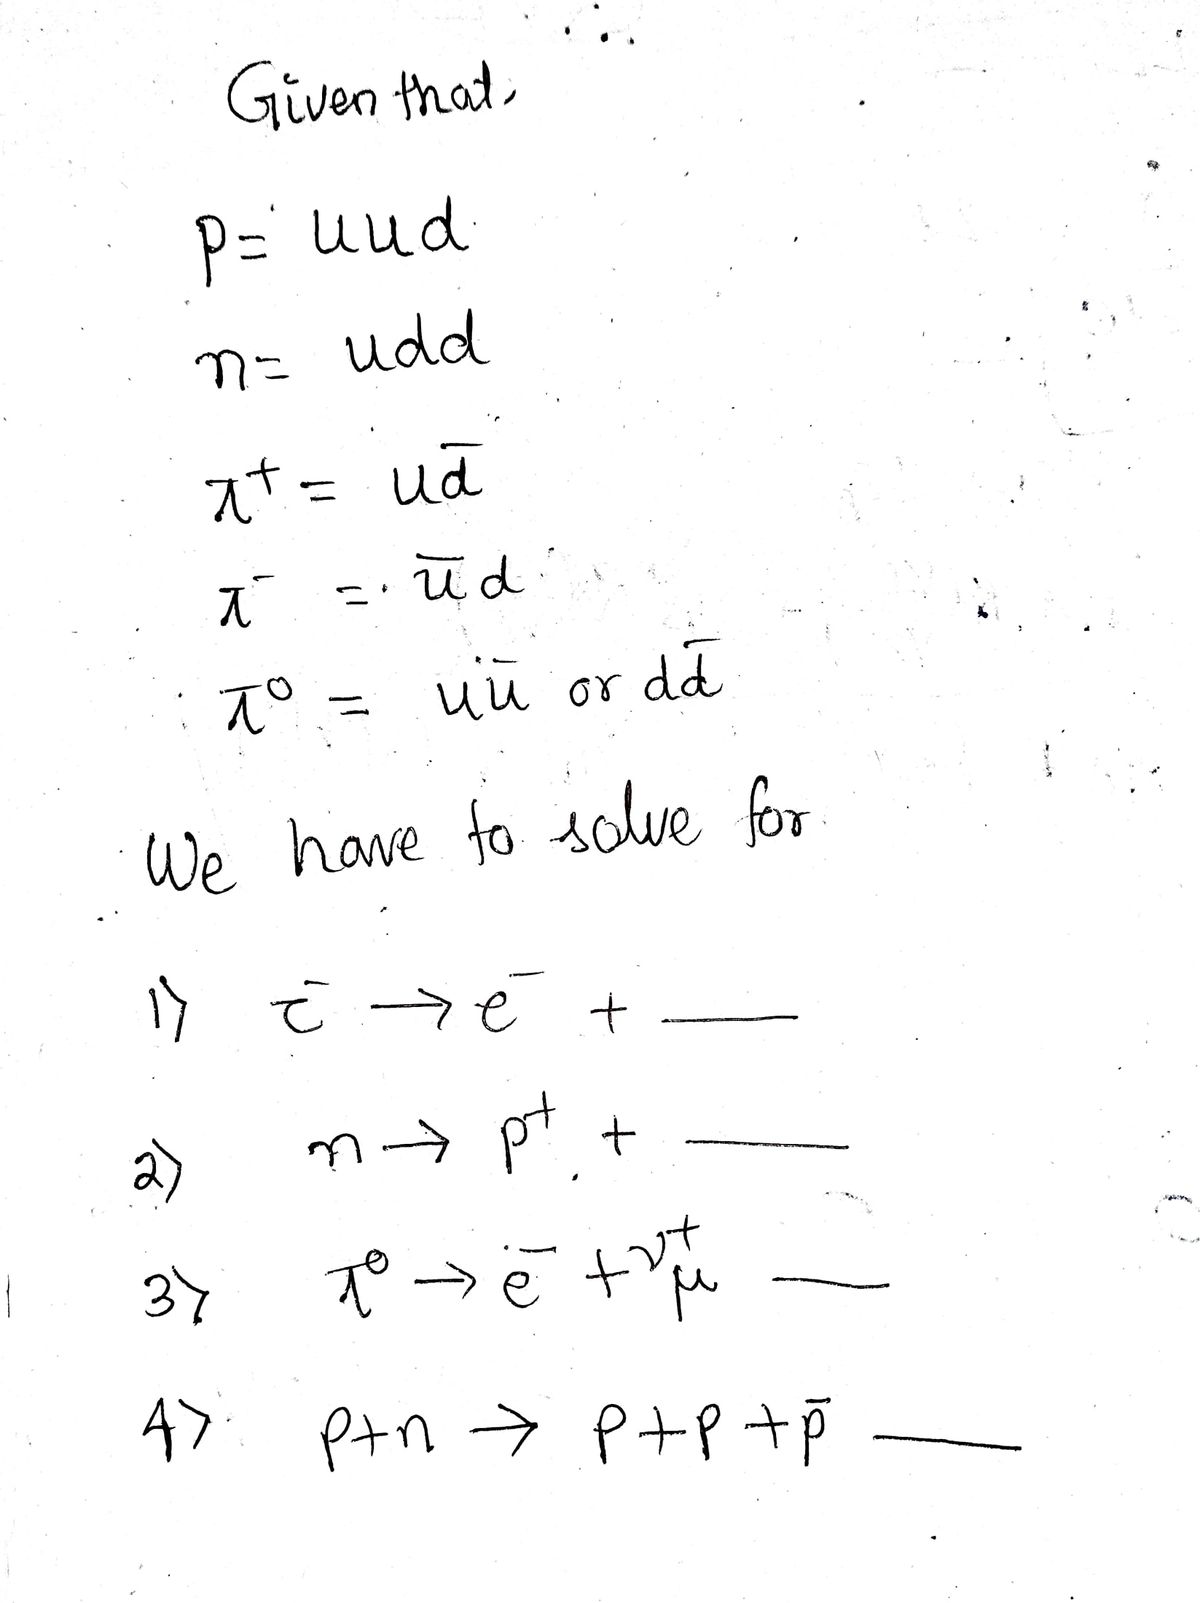 Given that,
p = uud
n = udd
π⁺ = ud̄
π⁻ = ūd
π⁰ = uū or dd̄
We have to solve for
1) τ⁻ → e⁻ + ___
2) n → p⁺ + ___
3) π⁰ → e⁻ + ν⁺μ ___
4) p+n → p+p+p̄ ___